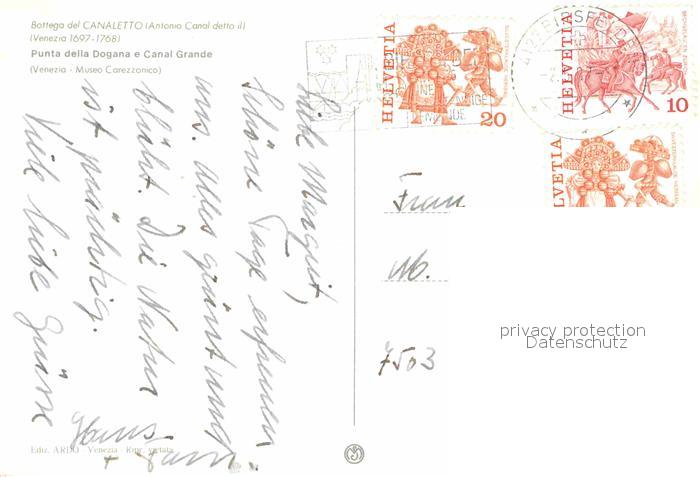 Bottega del CANALETTO (Antonio Canal detto il)
(Venezia 1697-1768)
Punta della Dogana e Canal Grande
(Venezia - Museo Carezzonico)
Liebe Margrit,
Schöne Tage erfreuen
uns. Alles grünt und
blüht. Die Natur
ist prächtig.
Viele liebe Grüsse
Hans
+
Ediz. ARDO Venezia - Ripr. vietata
HELVETIA
20
HELVETIA
10
HELVETIA
Frau
M.
7503
privacy protection
Datenschutz